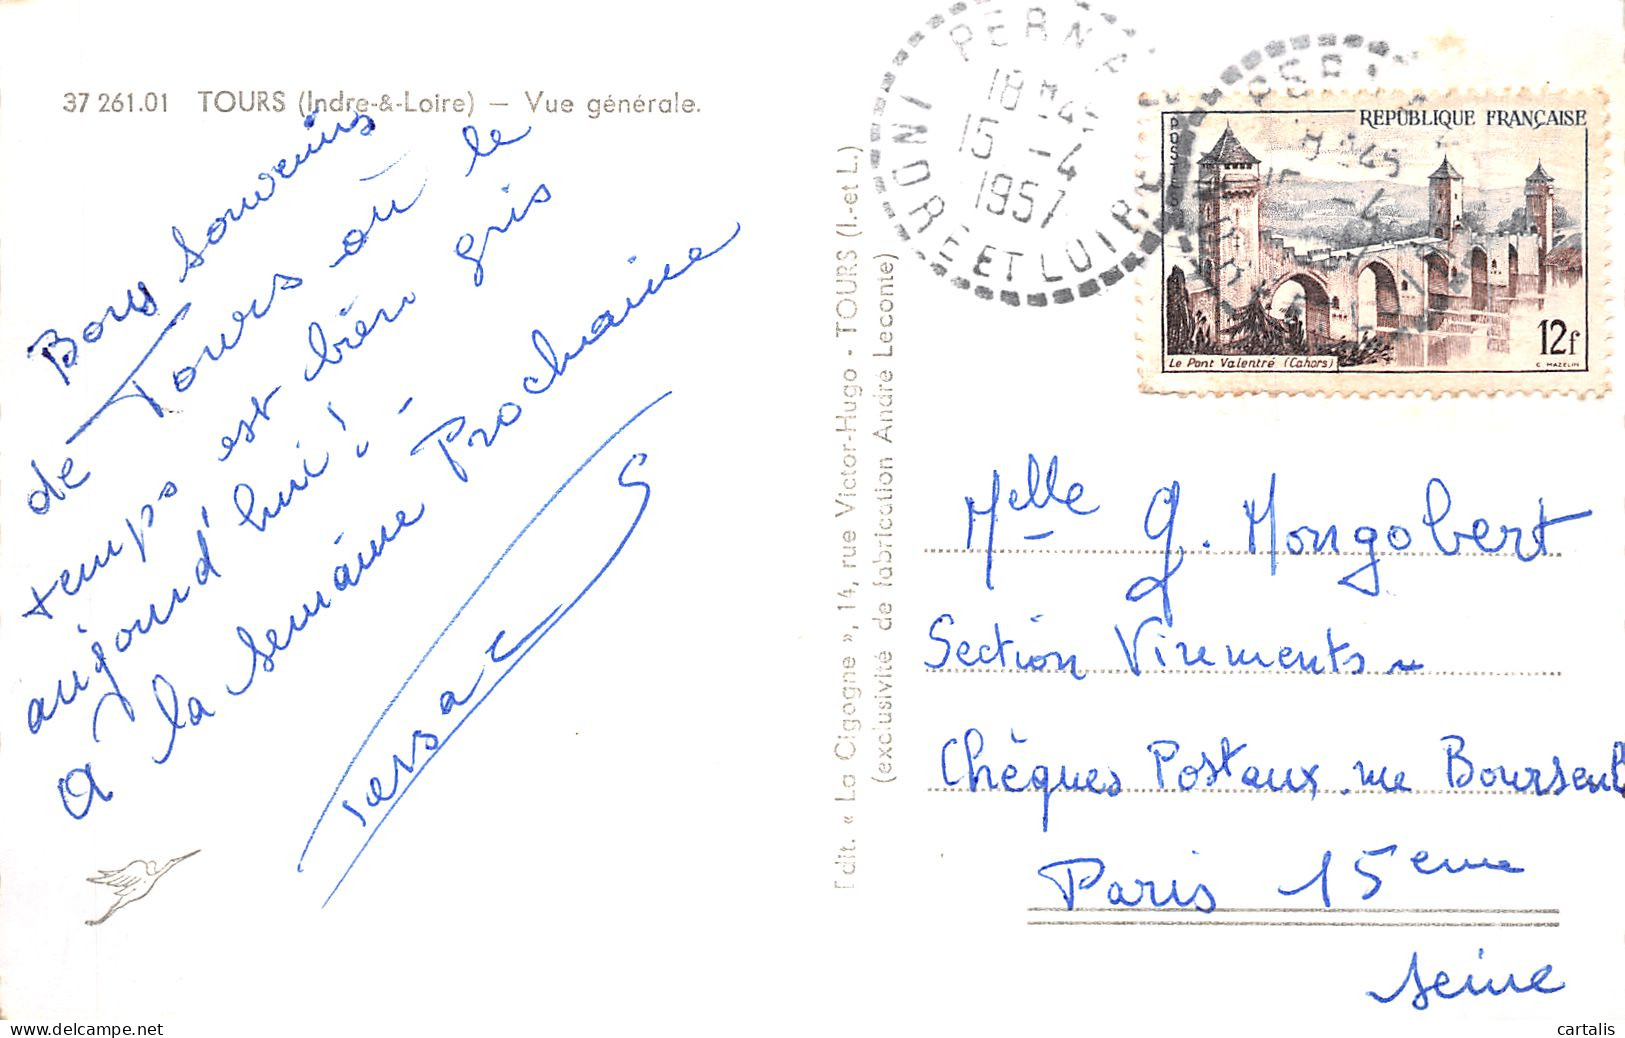 37 261.01 TOURS (Indre-&-Loire) — Vue générale.
Bons souvenirs
de Tours où le
temps est bien gris
aujourd'hui! -
A la semaine Prochaine
Edit. « La Cigogne », 14, rue Victor-Hugo - TOURS (I.-et L.)
(exclusivité de fabrication André Leconte)
18 H 45
15 -4
1957
INDRE ET LOIRE
RÉPUBLIQUE FRANÇAISE
POSTES
Le Pont Valentré (Cahors)
12f
C. MAZELIN
Melle G. Mongobert
Section Virements ~
Chèques Postaux. rue Bourseul
Paris 15eme
Seine
cartalis